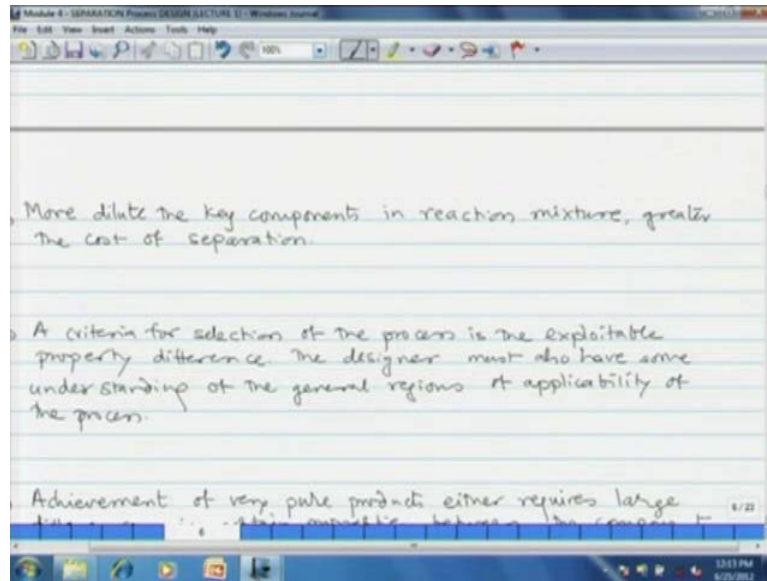 Module 4 - SEPARATION Process DESIGN (LECTURE 1) - Windows Journal
File Edit View Insert Actions Tools Help
100%
More dilute the key components in reaction mixture, greater
the cost of separation.
A criteria for selection of the process is the exploitable
property difference. The designer must also have some
understanding of the general regions of applicability of
the process.
Achievement of very pure products either requires large
between the
6/22
6
12:03 PM
6/25/2012